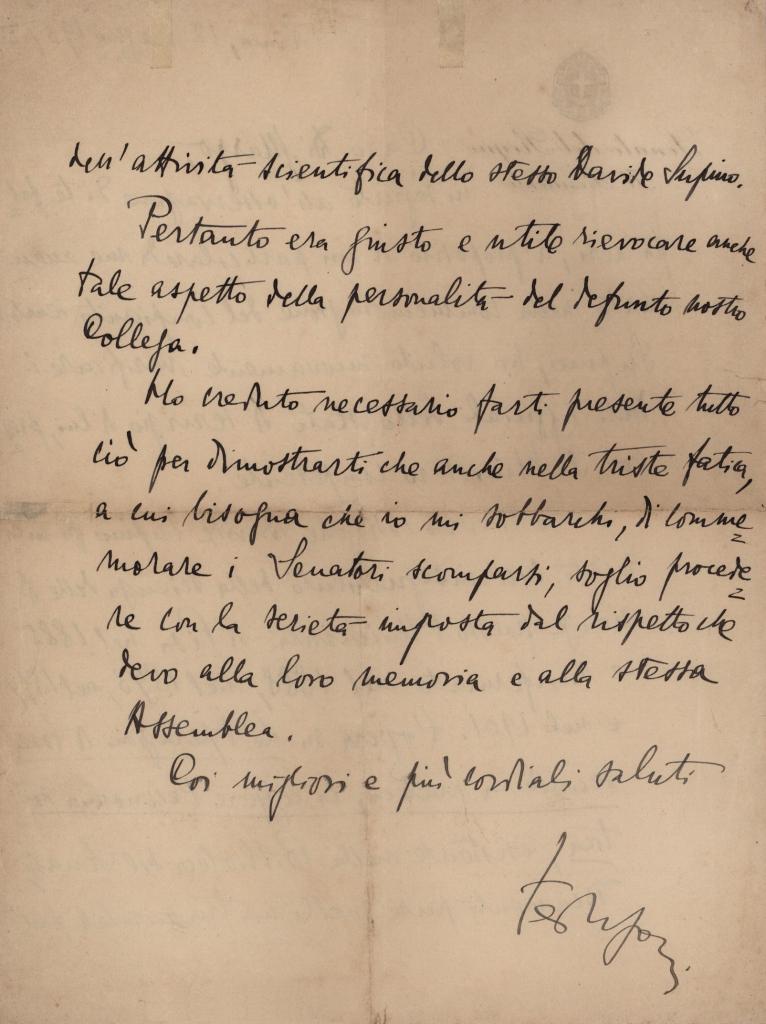 dell'attività scientifica dello stesso Davide Supino.
Pertanto era giusto e utile rievocare anche
tale aspetto della personalità del defunto nostro
Collega.
Ho creduto necessario farti presente tutto
ciò per dimostrarti che anche nella triste fatica,
a cui bisogna che io mi sobbarchi, di comme=
morare i Senatori scomparsi, soglio procede=
re con la serietà imposta dal rispetto che
devo alla loro memoria e alla stessa
Assemblea.
Coi migliori e più cordiali saluti
Federzoni